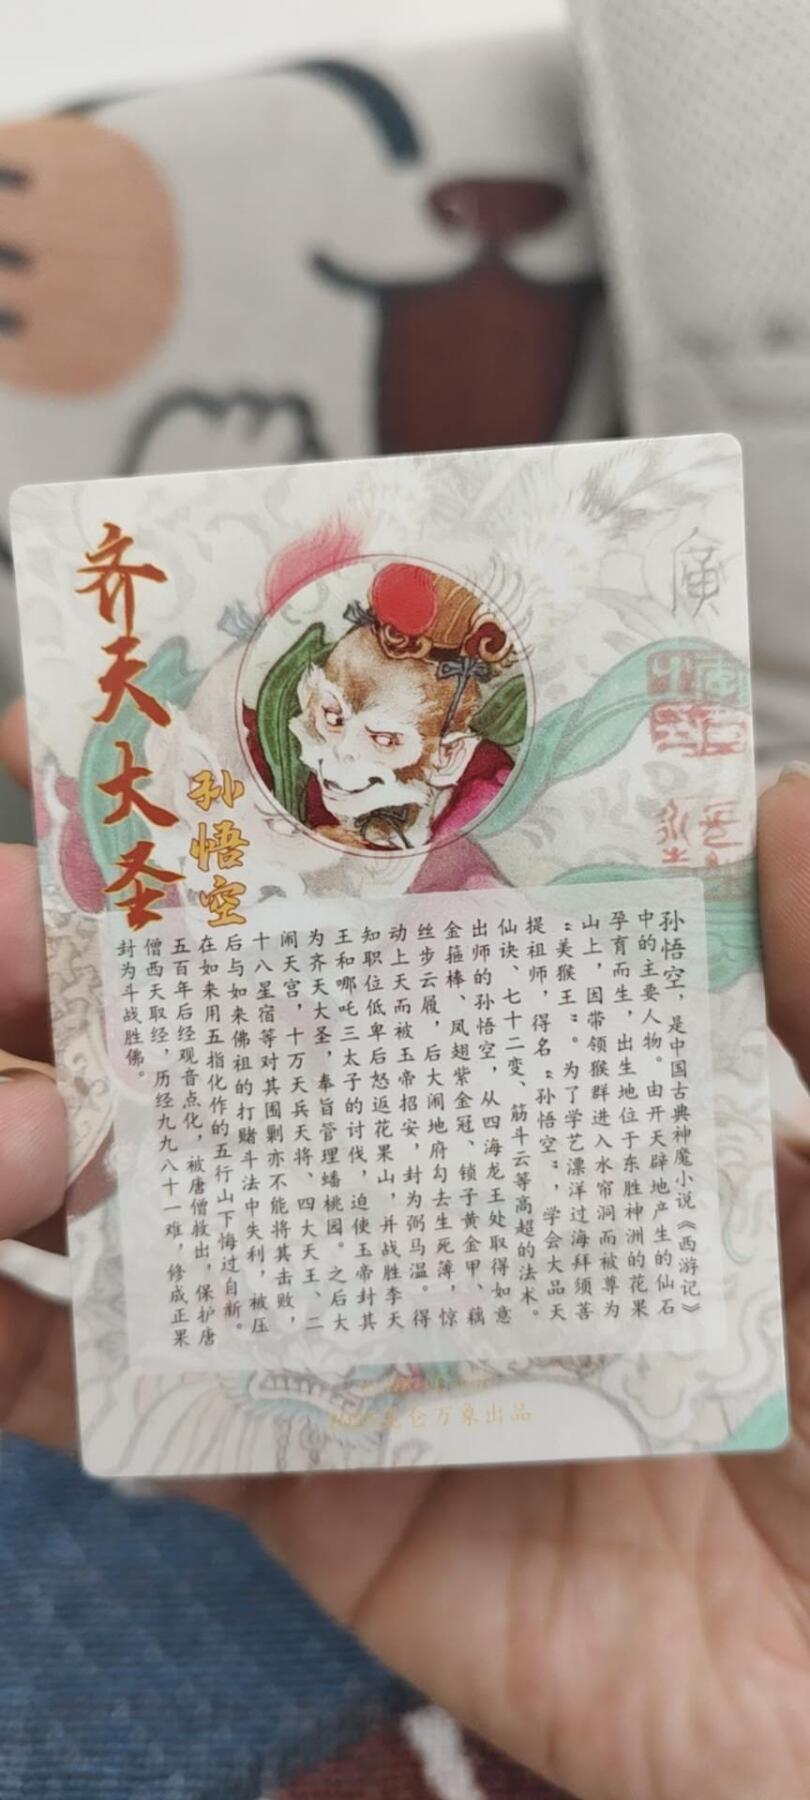 齐天大圣
孙悟空
孙悟空，是中国古典神魔小说《西游记》
中的主要人物。由开天辟地产生的仙石
孕育而生，出生地位于东胜神洲的花果
山上，因带领猴群进入水帘洞而被尊为
“美猴王”。为了学艺漂洋过海拜须菩
提祖师，得名“孙悟空”，学会大品天
仙诀、七十二变、筋斗云等高超的法术。
出师的孙悟空，从四海龙王处取得如意
金箍棒、凤翅紫金冠、锁子黄金甲、藕
丝步云履，后大闹地府勾去生死薄，惊
动上天而被玉帝招安，封为弼马温。得
知职位低卑后怒返花果山，并战胜李天
王和哪吒三太子的讨伐，迫使玉帝封其
为齐天大圣，奉旨管理蟠桃园。之后大
闹天宫，十万天兵天将、四大天王、二
十八星宿等对其围剿亦不能将其击败，
后与如来佛祖的打赌斗法中失利，被压
在如来用五指化作的五行山下悔过自新。
五百年后经观音点化，被唐僧救出，保护唐
僧西天取经，历经九九八十一难，修成正果
封为斗战胜佛。
廣
仑万象出品